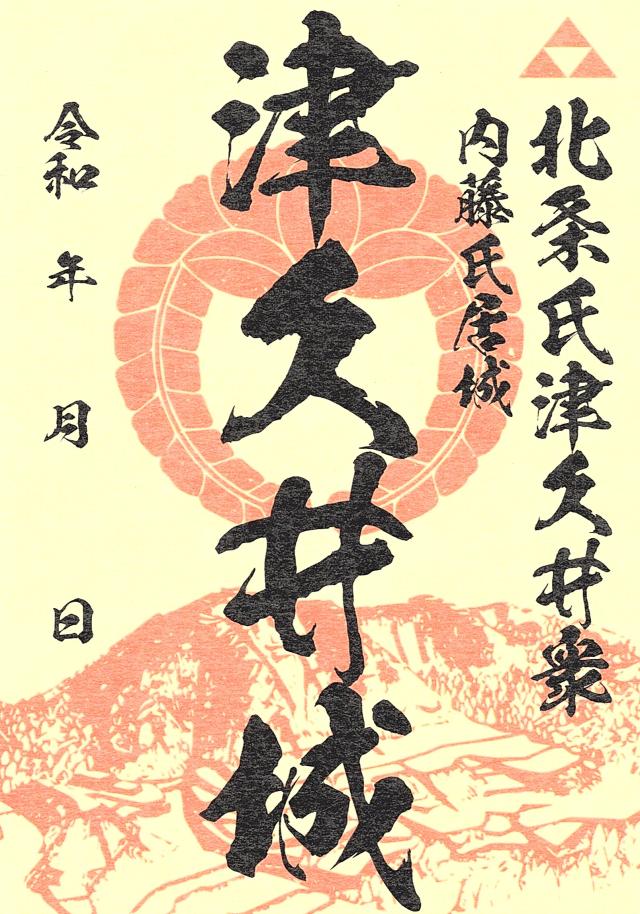 北条氏津久井衆
内藤氏居城
津久井城
令和 年 月 日